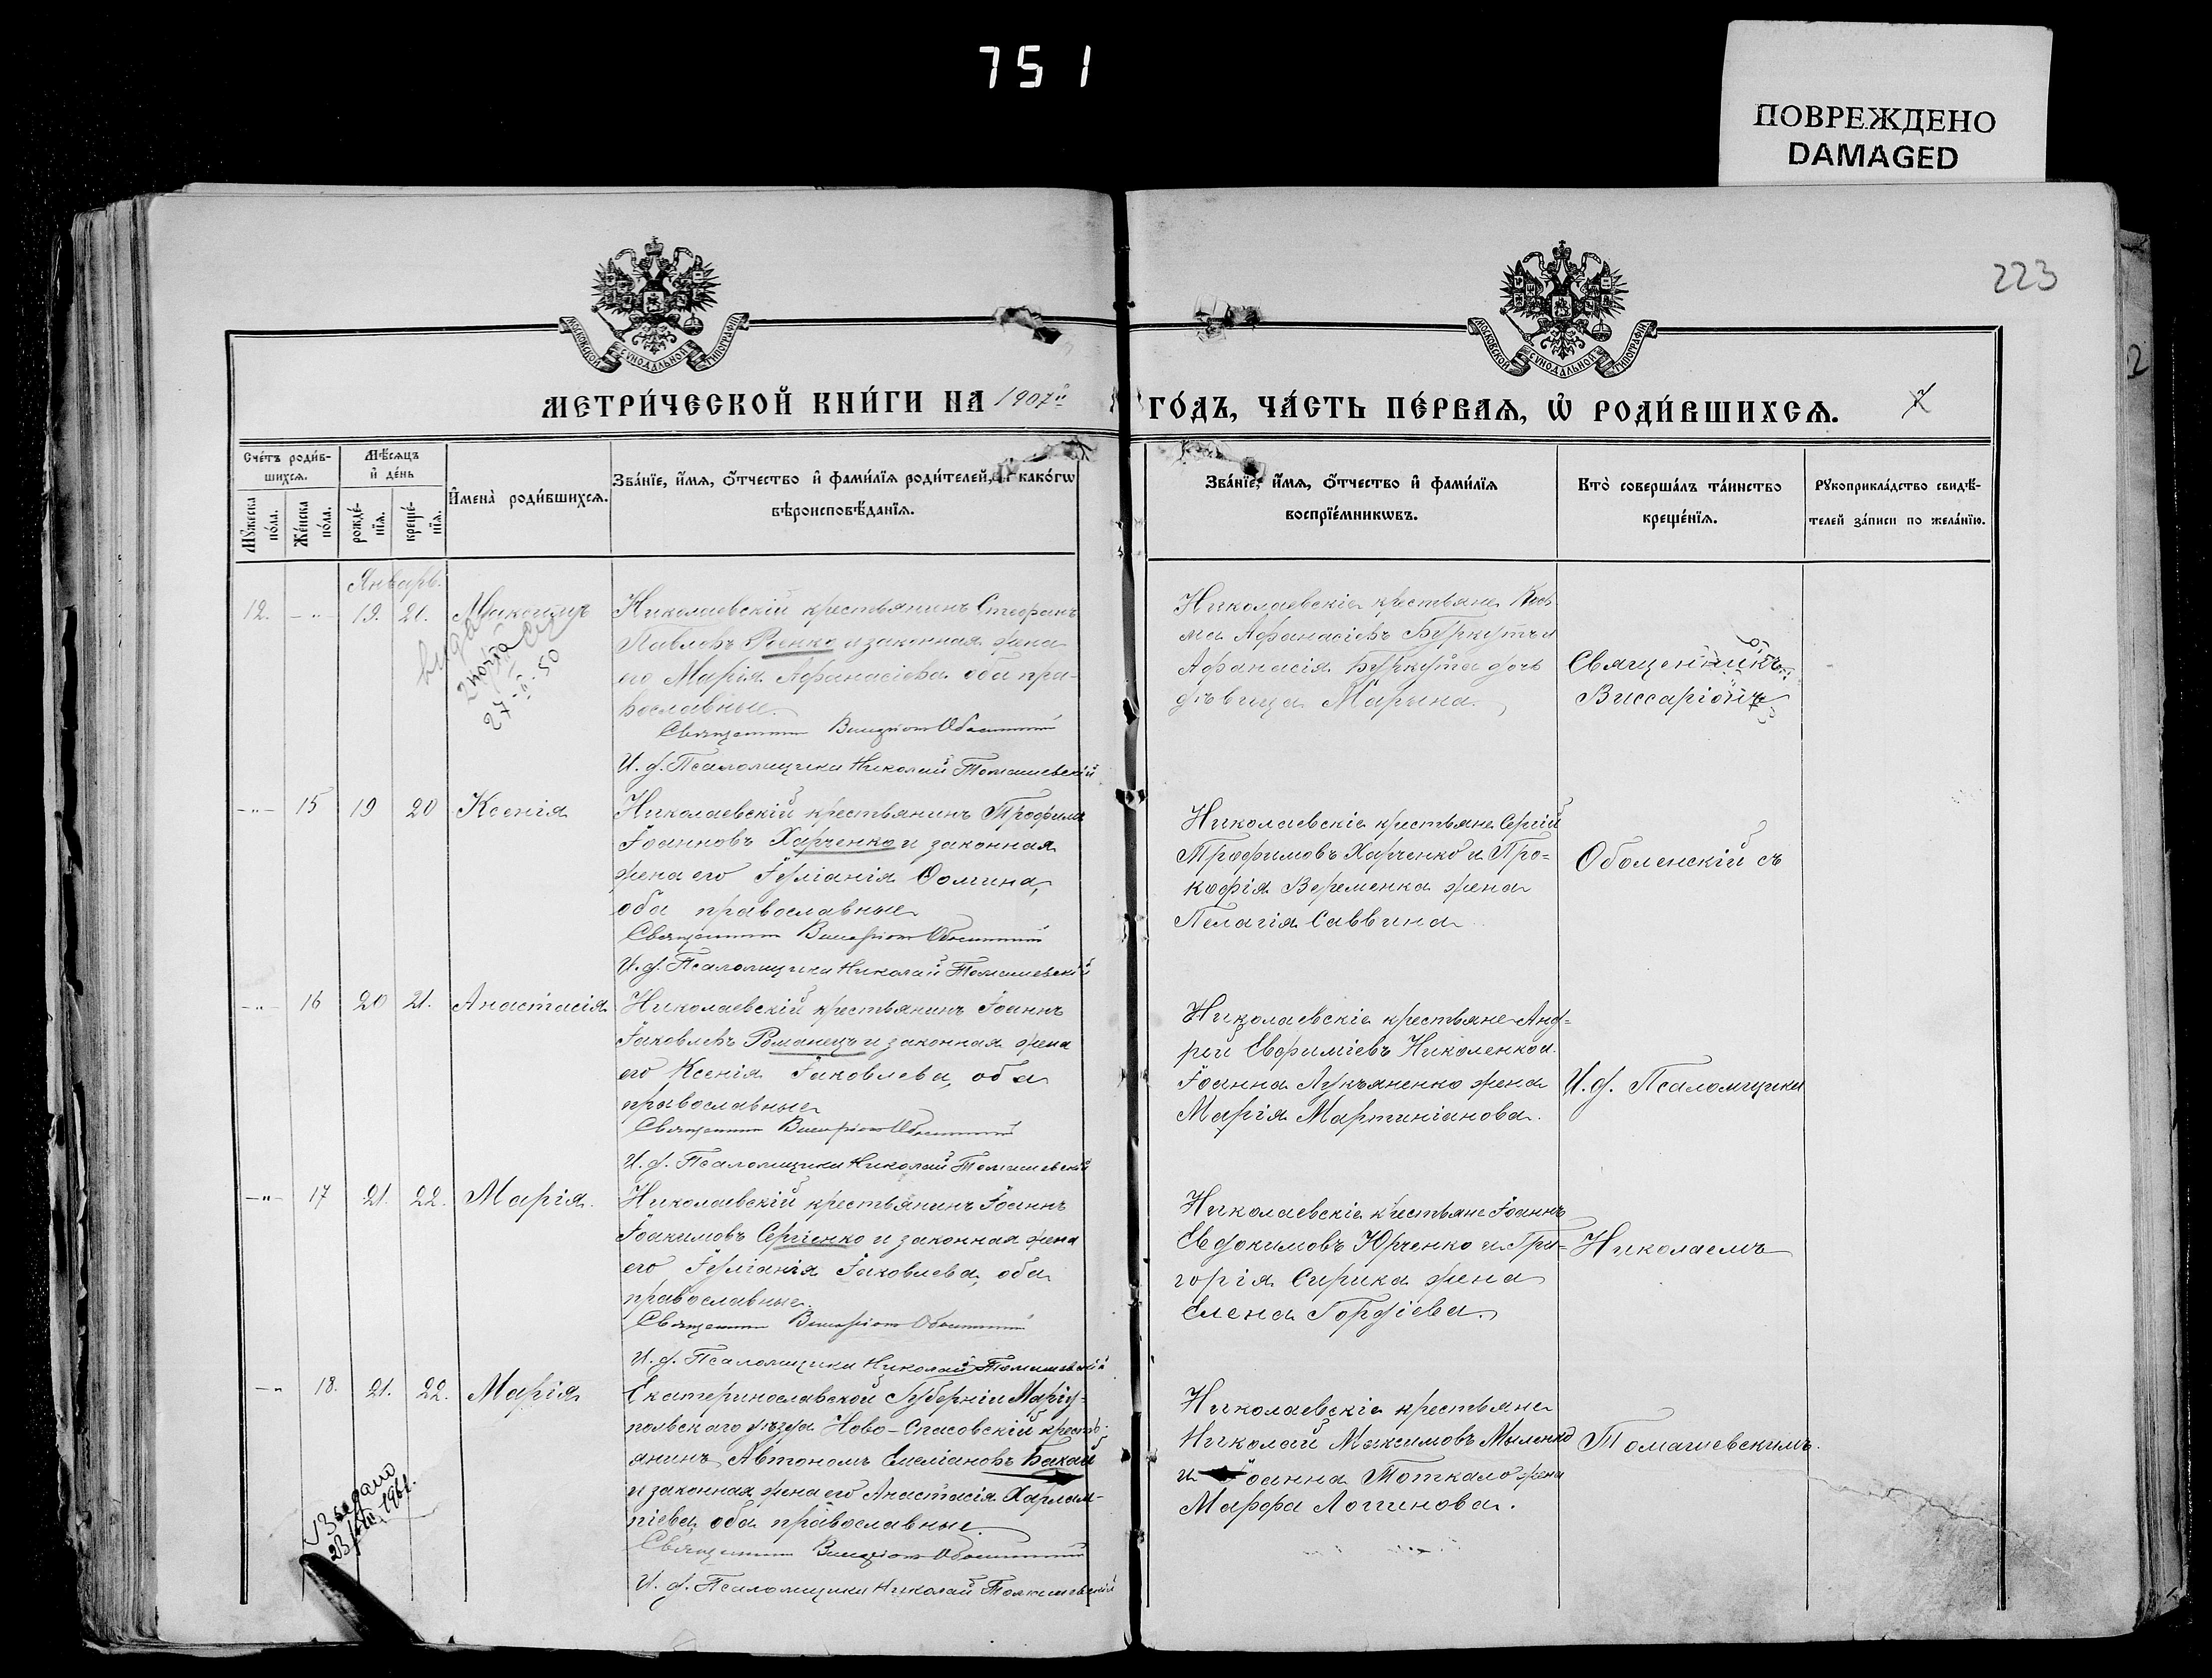 751
ПОВРЕЖДЕНО
DAMAGED
223
2
МОСКОВСКОЙ СѴНОДАЛЬНОЙ ТИПОГРАФІИ
МОСКОВСКОЙ СѴНОДАЛЬНОЙ ТИПОГРАФІИ
МЕТРИ́ЧЕСКОЙ КНИ́ГИ НА 1907й
ГО́ДЪ, ЧА́СТЬ ПЕ́РВАѦ, Ѿ РОДИ́ВШИХСѦ.
Сче́тъ роди́в-
шихсѧ.
Мѣ́сѧцъ
и҆ де́нь
Мꙋ́жеска
по́ла.
Же́нска
по́ла.
рожде́-
нїѧ.
креще́-
нїѧ.
И҆мена̀ роди́вшихсѧ.
Зва́нїе, и҆́мѧ, ѻ҆́тчество и҆ фами́лїѧ роди́телей, и҆ како́гѡ
вѣроисповѣ́данїѧ.
Зва́нїе, и҆́мѧ, ѻ҆́тчество и҆ фами́лїѧ
воспрїе́мникѡвъ.
Кто̀ соверша́лъ та́инство
креще́нїѧ.
Рꙋкоприкла́дство свидѣ́-
телей за́писи по жела́нїю.
Январь.
12. -"- 19. 21. Максимъ
27-II-50
Николаевскій крестьянинъ Стефанъ
Павловъ Рѣнко и законная жена
его Марія Афанасіева оба пра-
вославные.
Священникъ Виссаріонъ Оболенскій
И. д. Псаломщика Николай Томашевскій
Николаевскіе крестьяне Кось
ма Афанасіевъ Буркутъ и
Афанасія Буркута дочь
дѣвица Марина.
Священникъ
Виссаріонъ
-"- 15 19 20 Ксенія
Николаевскій крестьянинъ Трофимъ
Іоанновъ Харченко и законная
жена его Іуліанія Фомина,
оба православные
Священникъ Виссаріонъ Оболенскій
И. д. Псаломщика Николай Томашевскій
Николаевскіе крестьяне Сергій
Трофимовъ Харченко и Про=
кофія Веременка жена
Пелагія Саввина
Оболенскій съ
-"- 16 20 21. Анастасія
Николаевскій крестьянинъ Іоаннъ
Іаковлевъ Романецъ и законная жена
его Ксенія Іаковлева, оба
православные
Священникъ Виссаріонъ Оболенскій
И. д. Псаломщика Николай Томашевскій
Николаевскіе крестьяне Анд=
рей Евфиміевъ Николенко и
Іоанна Лукьяненко жена
Марія Мартиніанова.
И. д. Псаломщика
-"- 17 21. 22. Марія.
Николаевскій крестьянинъ Іоаннъ
Іоакимовъ Сергіенко и законная жена
его Іуліанія Іаковлева, оба
православные.
Священникъ Виссаріонъ Оболенскій
И. д. Псаломщика Николай Томашевскій
Николаевскіе крестьяне Іоаннъ
Евдокимовъ Юрченко и Гри=
горія Сирика жена
Елена Гордіева.
Николаемъ
-"- 18. 21. 22. Марія
23/VIII 1961.
Екатеринославской Губерніи Маріу-
польскаго уѣзда Ново-Спасовскій кресть-
янинъ Автономъ Емеліановъ Бахай
и законная жена его Анастасія Харлам-
піева, оба православные.
Священникъ Виссаріонъ Оболенскій
И. д. Псаломщика Николай Томашевскій
Николаевскіе крестьяне
Николай Максимовъ Мыленко
и Іоанна Тоткало жена
Марфа Логгинова.
Томашевскимъ.